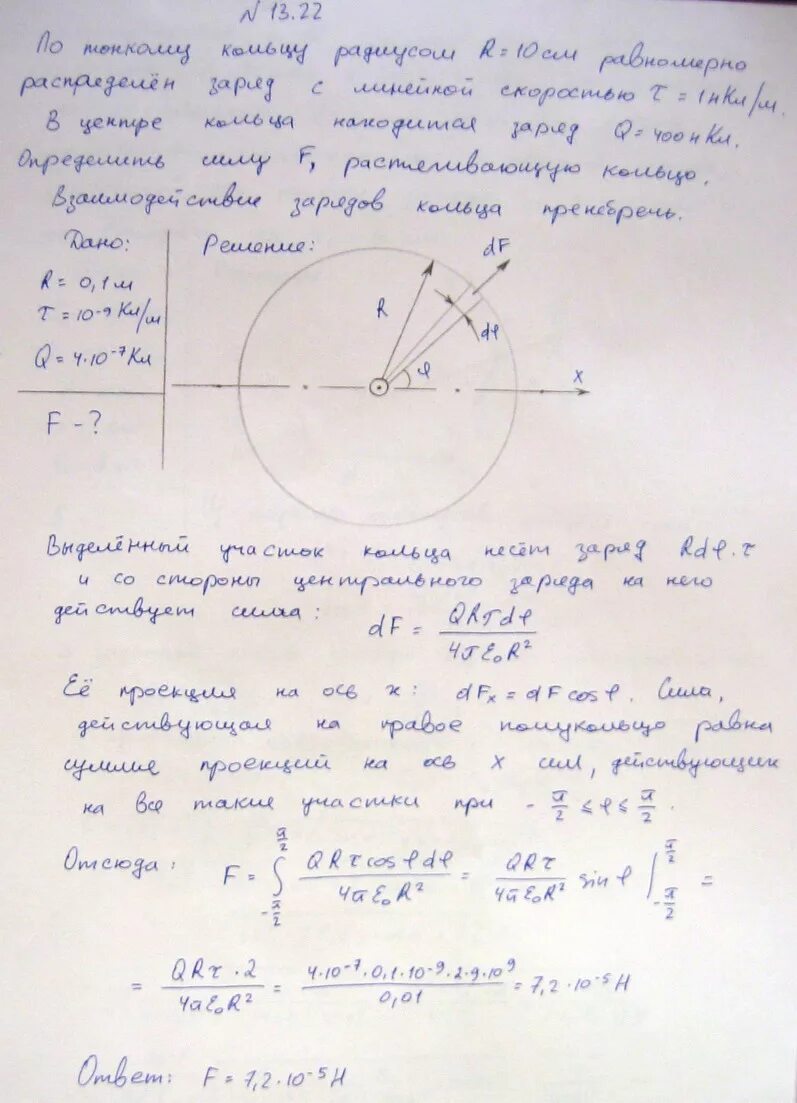 N 13.22
По тонкому кольцу радиусом R = 10 см равномерно
распределён заряд с линейной скоростью τ = 1 нКл/м.
В центре кольца находится заряд Q = 400 нКл.
Определить силу F, растягивающую кольцо.
Взаимодействие зарядов кольца пренебречь.
Дано:
R = 0,1 м
τ = 10⁻⁹ Кл/м
Q = 4·10⁻⁷ Кл
F - ?
Решение:
dF
R
dφ
φ
x
Выделенный участок кольца несёт заряд Rdφ·τ
и со стороны центрального заряда на него
действует сила: dF = QRτdφ / 4πε₀R²
Её проекция на ось x: dFₓ = dF cosφ. Сила,
действующая на правое полукольцо равна
сумме проекций на ось x сил, действующих
на все такие участки при - π/2 ≤ φ ≤ π/2.
Отсюда: F = ∫_{-π/2}^{π/2} QRτcosφdφ / 4πε₀R² = QRτ / 4πε₀R² sinφ |_{-π/2}^{π/2} =
= QRτ·2 / 4πε₀R² = 4·10⁻⁷·0,1·10⁻⁹·2·9·10⁹ / 0,01 = 7,2·10⁻⁵ Н
Ответ: F = 7,2·10⁻⁵ Н